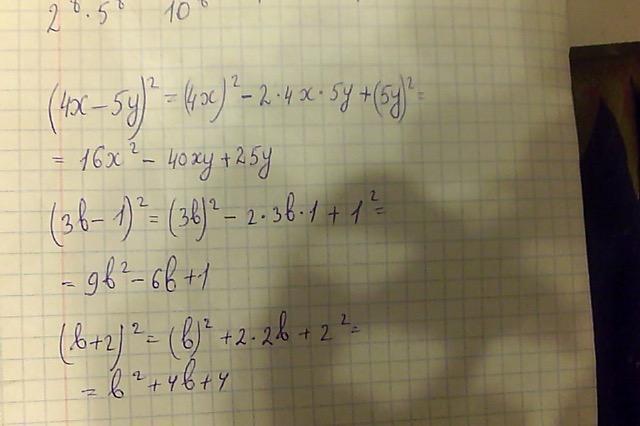 2⁸ · 5⁸ 10⁸
(4x – 5y)² = (4x)² – 2 · 4x · 5y + (5y)² =
= 16x² – 40xy + 25y
(3b – 1)² = (3b)² – 2 · 3b · 1 + 1² =
= 9b² – 6b + 1
(b + 2)² = (b)² + 2 · 2b + 2² =
= b² + 4b + 4